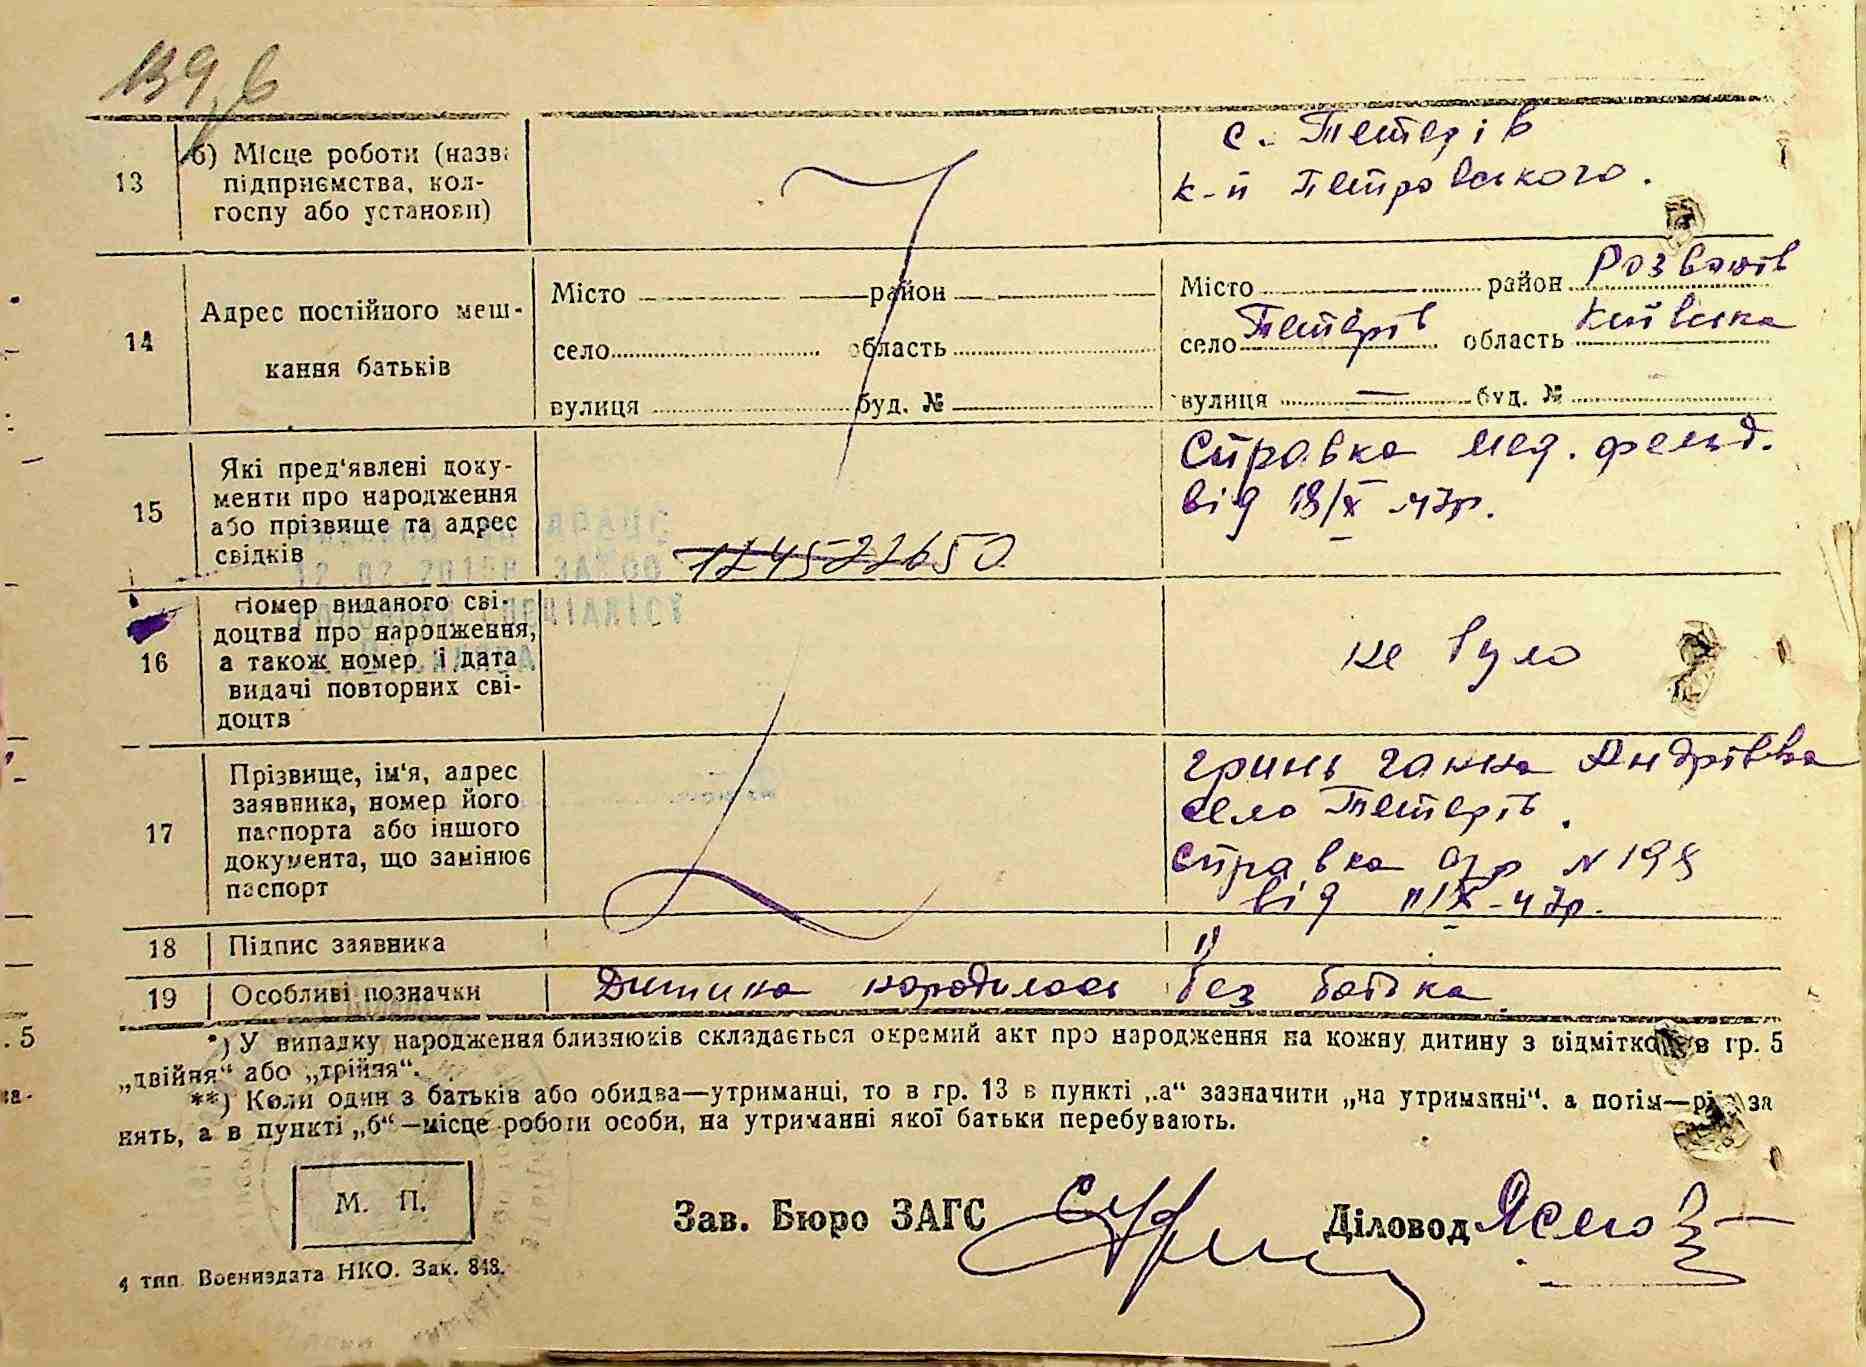 139,б
13
б) Місце роботи (назва
підприємства, кол-
госпу або установи)
с. Тетерів
к-п Петровського.
14
Адрес постійного меш-
кання батьків
Місто район
село область
вулиця буд. №
Місто район Розважів
село Тетерів область Київська
вулиця — буд. №
15
Які пред'явлені доку-
менти про народження
або прізвище та адрес
свідків
124522650
Справка мед. фельд.
від 18/X 47р.
16
Номер виданого сві-
доцтва про народження,
а також номер і дата
видачі повторних сві-
доцтв
не було
17
Прізвище, ім'я, адрес
заявника, номер його
паспорта або іншого
документа, що замінює
паспорт
Гринь Ганна Андріївна
село Тетерів.
Справка с/р N 198
від 11/X-47р.
18 Підпис заявника
19 Особливі позначки Дитина народилась без батька
*) У випадку народження близнюків складається окремий акт про народження на кожну дитину з відміткою в гр. 5
„двійня“ або „трійня“.
**) Коли один з батьків або обидва—утриманці, то в гр. 13 в пункті „а“ зазначити „на утриманні“, а потім—рід за
нять, а в пункті „б“—місце роботи особи, на утриманні якої батьки перебувають.
М. П.
Зав. Бюро ЗАГС
Діловод
4 тип. Воениздата НКО. Зак. 848.